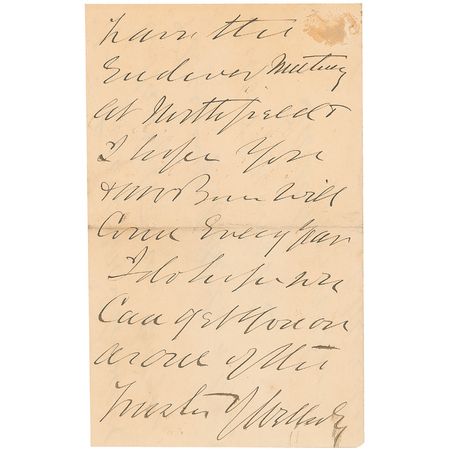 have the
Endever Meeting
at Northfield &
I hope you
& Mr will
Come Every year
I do hope we
Can get you on
as one of the
of